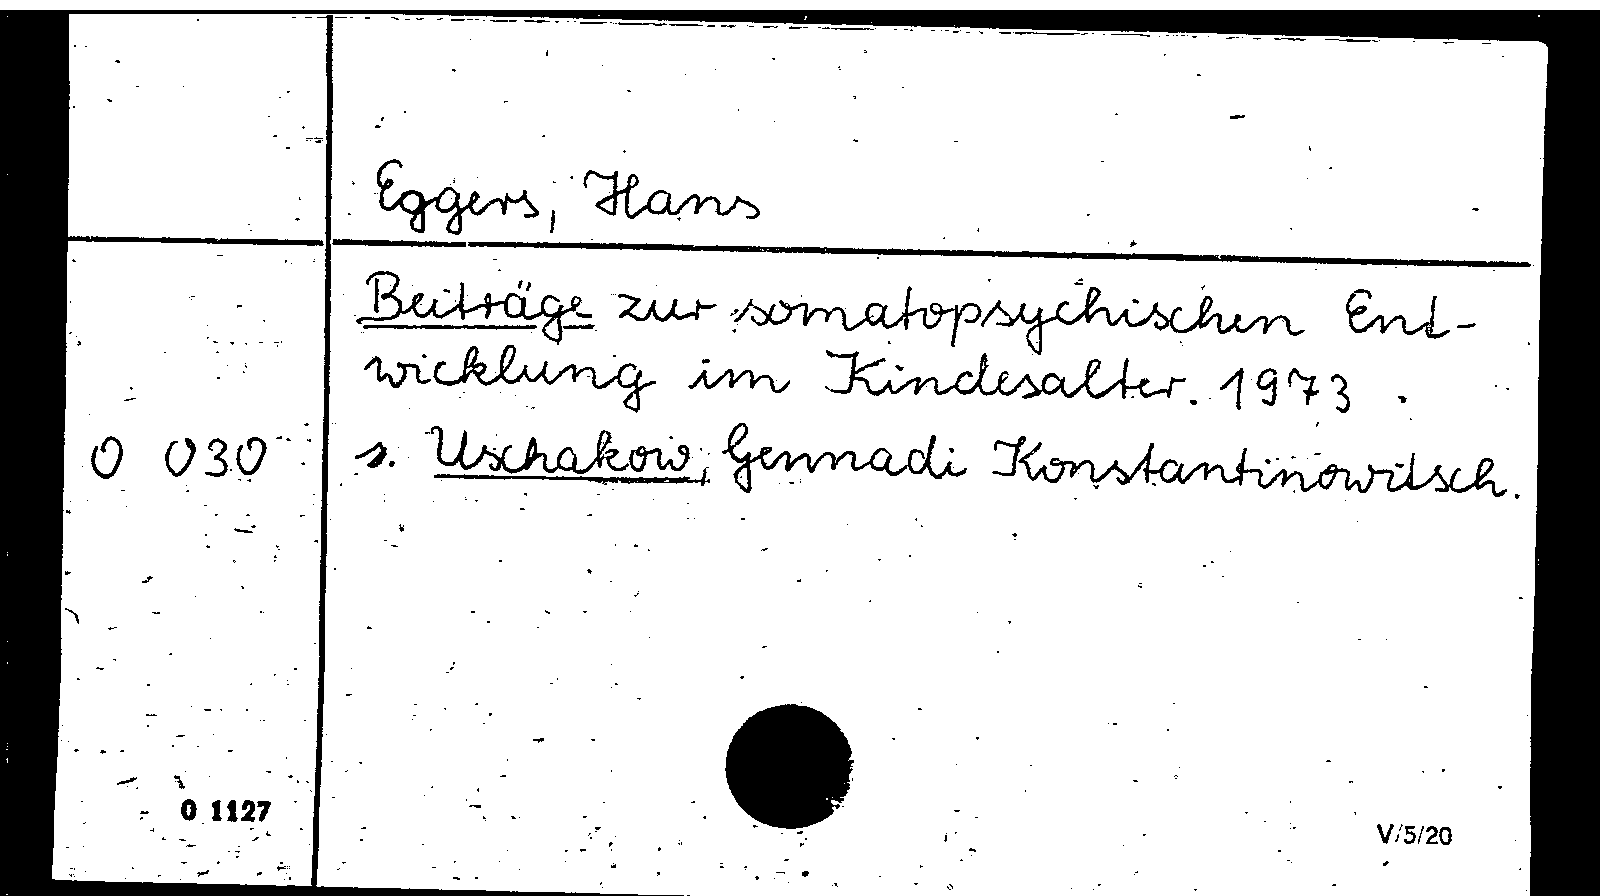 Eggers, Hans
Beiträge zur somatopsychischen Ent-
wicklung im Kindesalter. 1973.
O 030 s. Uschakow, Gennadi Konstantinowitsch.
O 1127
V/5/20